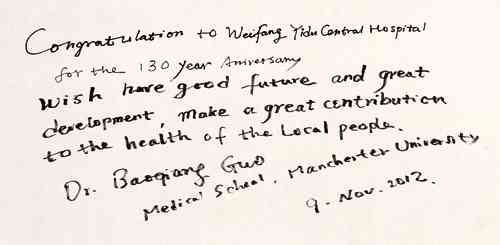 Congratulation to Weifang Yidu Central Hospital
for the 130 year Aniversary
wish have good future and great
development, make a great contribution
to the health of the Local people.
Dr. Baoqiang Guo
Medical School, Manchester University
9. Nov. 2012.